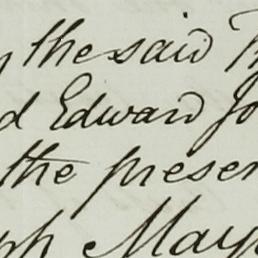 the said
d Edward Jo
the presen
ph May